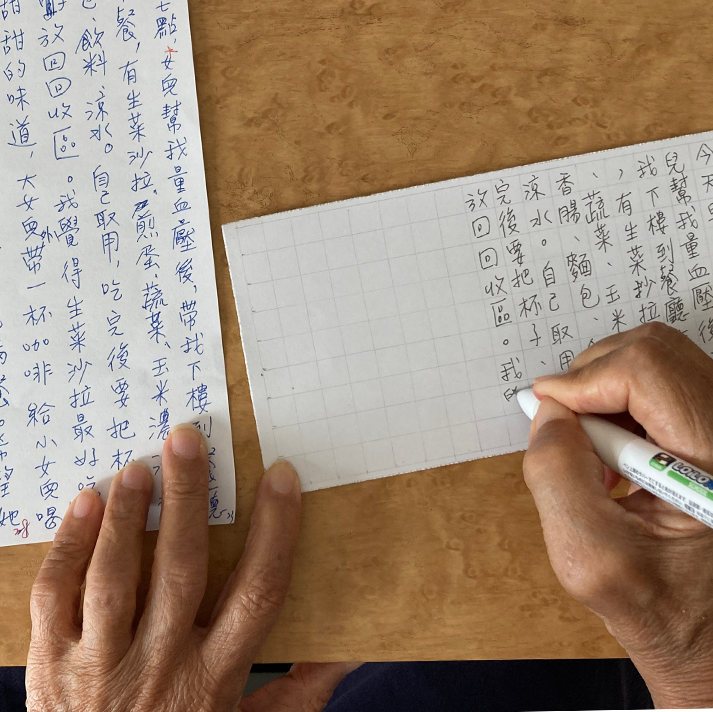 今天
兒幫我量血壓後
我下樓到餐廳
，有生菜抄拉
、蔬菜、玉米
香腸、麵包、
涼水。自己取用
完後要把杯子、
放回回收區。我
七點，女兒幫我量血壓後，帶我下樓到
餐，有生菜沙拉，煎蛋、蔬菜、玉米濃
、飲料、涼水。自己取用，吃完後要把杯
放回回收區。我覺得生菜沙拉最好吃
甜甜的味道，大女兒帶一杯咖啡給小女兒喝
外